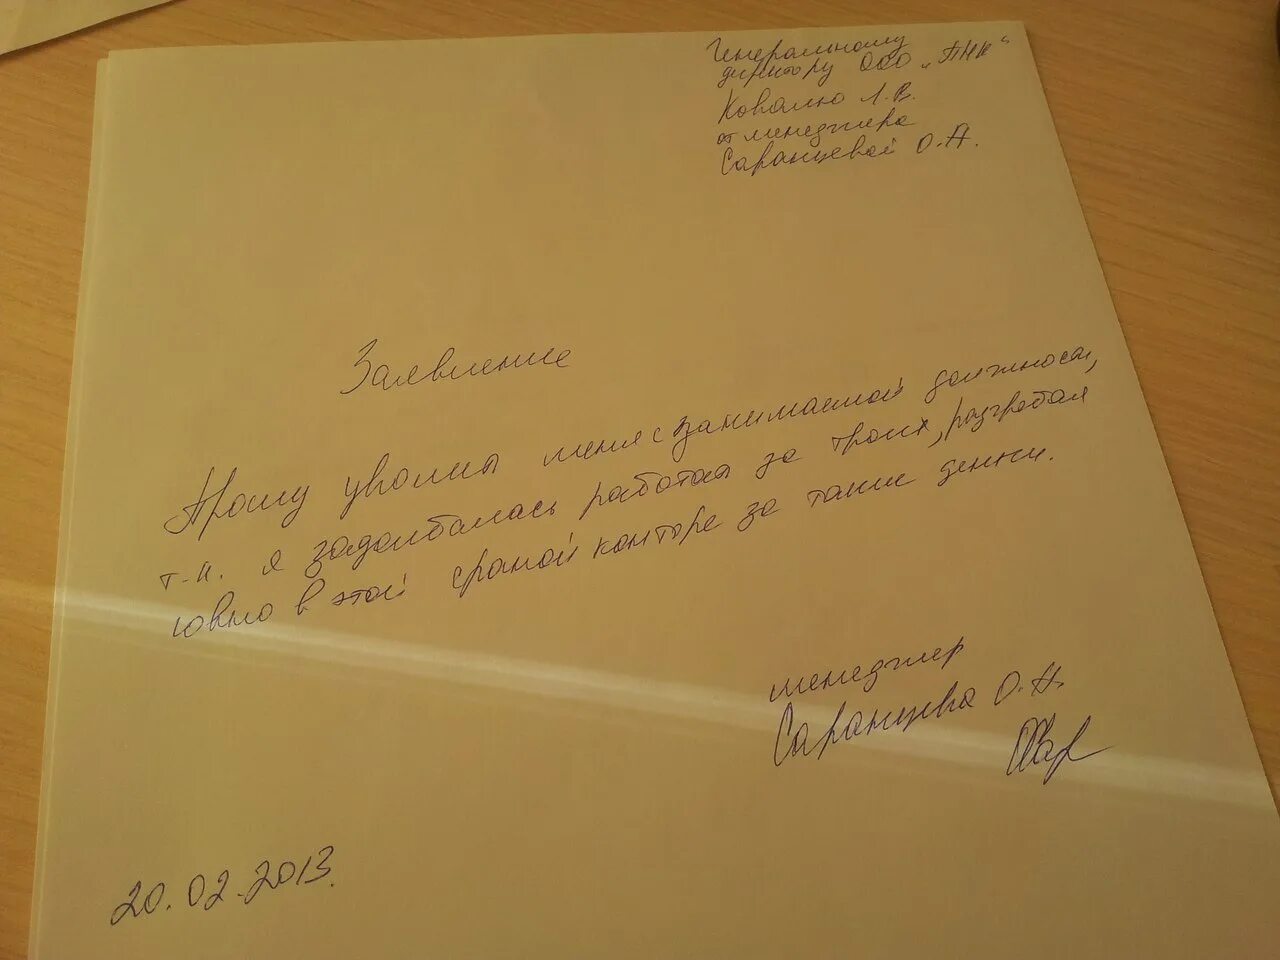 Генеральному
директору ООО „ПНК“
Ковалю Л.В.
от менеджера
Саранцевой О.А.
Заявление
Прошу уволить меня с занимаемой должности,
т.к. я задолбалась работать за троих, разгребая
говно в этой сраной конторе за такие деньги.
менеджер
Саранцева О.А.
20.02.2013.